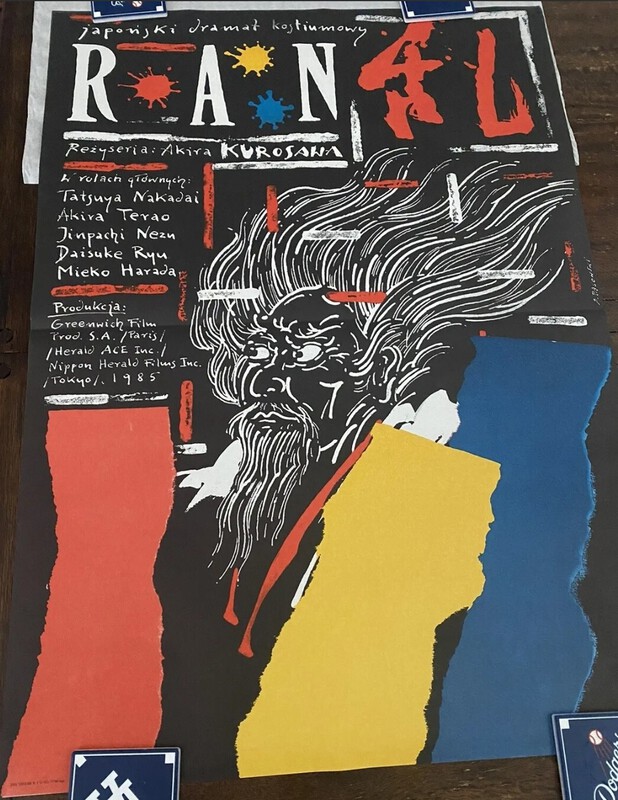 japoński dramat kostiumowy
RAN 乱
Reżyseria: Akira KUROSAWA
W rolach głównych:
Tatsuya Nakadai
Akira Terao
Jinpachi Nezu
Daisuke Ryu
Mieko Harada
Produkcja:
Greenwich Film
Prod. S.A. /Paris/
/Herald ACE Inc./
Nippon Herald Films Inc.
/Tokyo/. 1985
LA
Dodgers